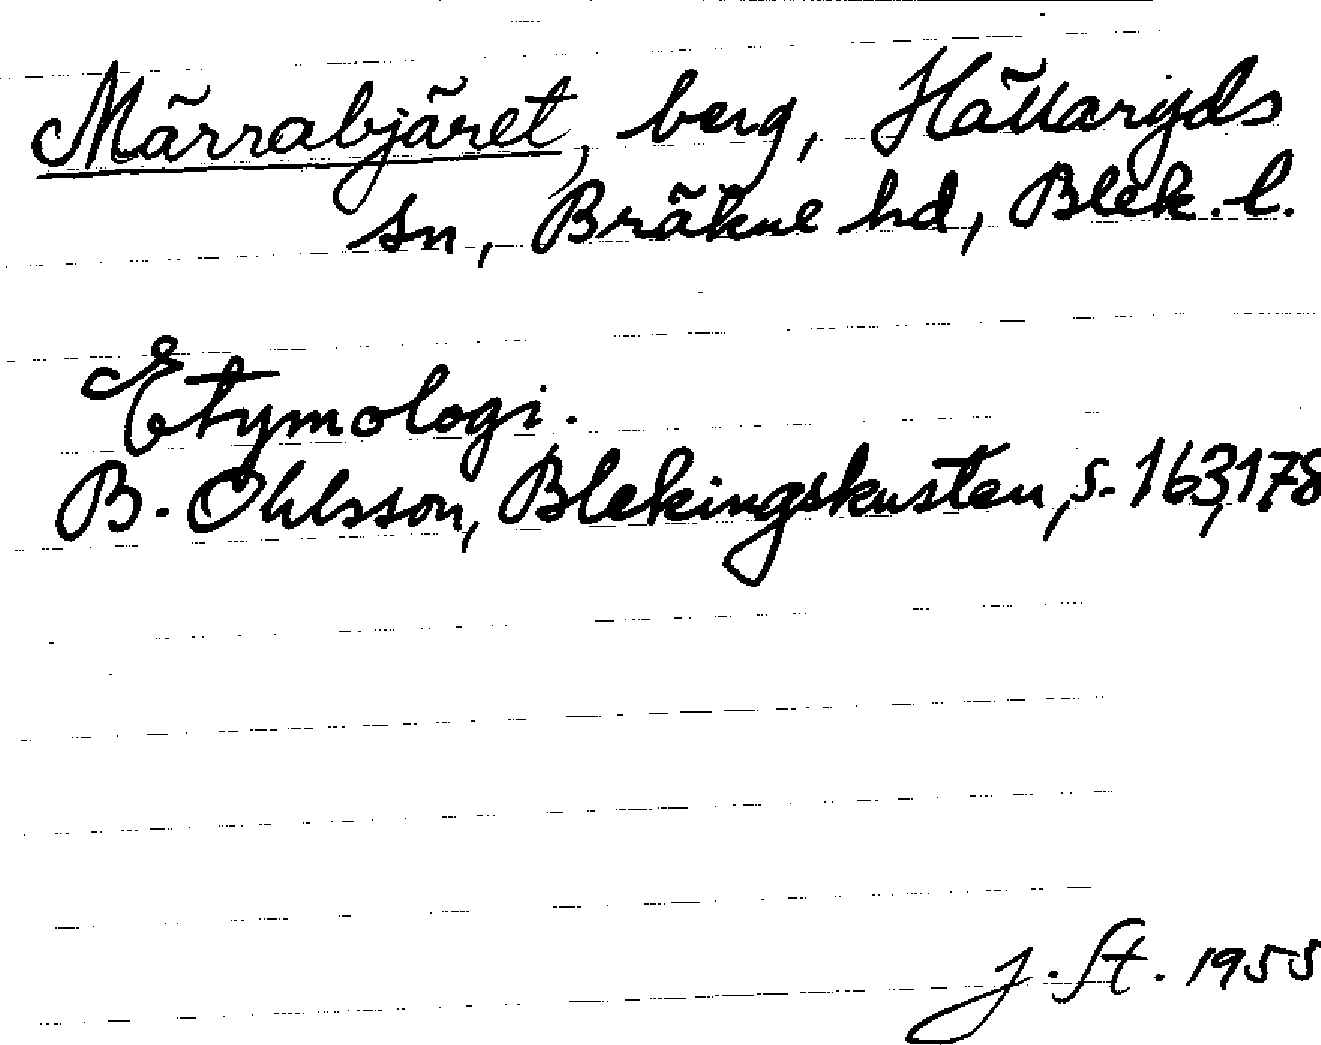 Märrabjäret, berg, Hällaryds
sn, Bräkne hd, Blek. l.
Etymologi.
B. Ohlsson, Blekingskusten, s. 163, 178
J. St. 1955